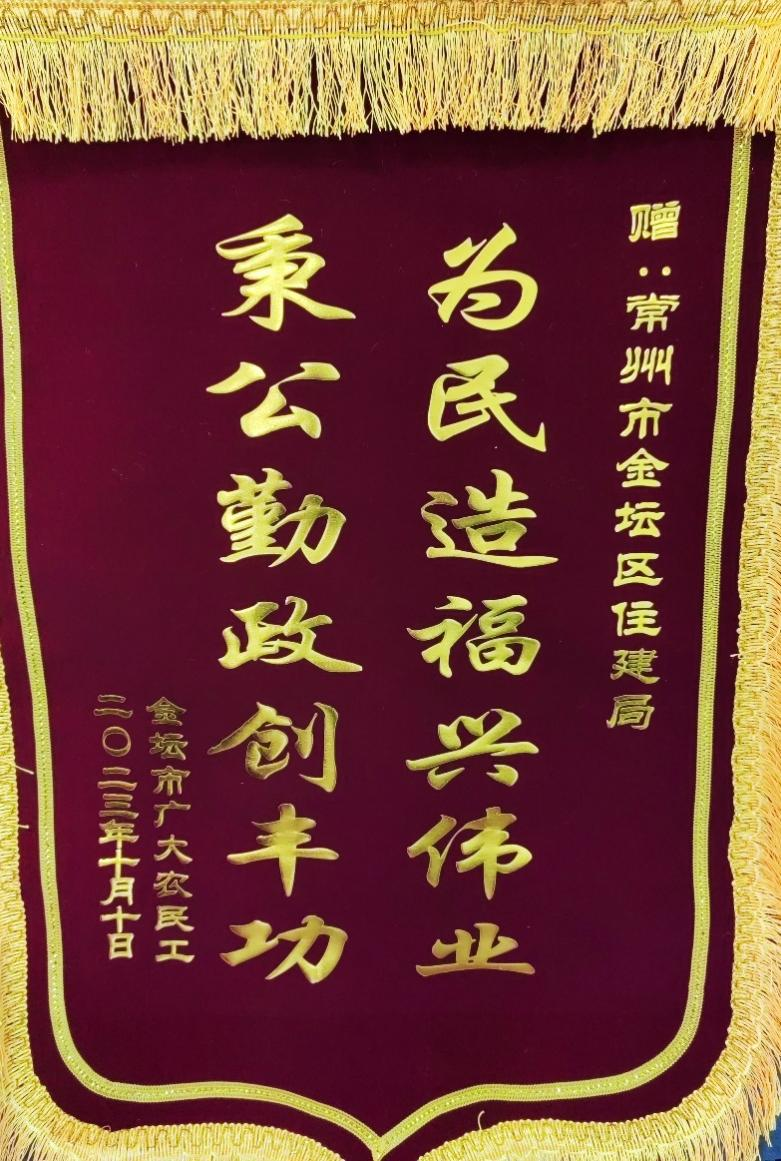 赠：常州市金坛区住建局
为民造福兴伟业
秉公勤政创丰功
金坛市广大农民工
二〇二三年十月十日